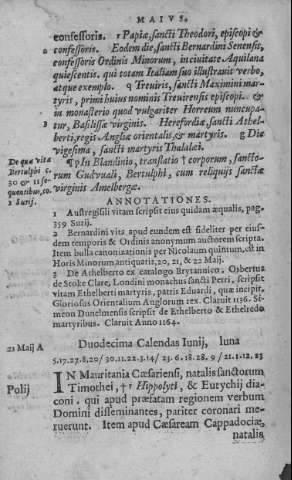 MAIVS.
confessoris. 1 Papiæ, sancti Theodori, episcopi &
confessoris. Eodem die, sancti Bernardini Senensis,
confessoris Ordinis Minorum, in ciuitate Aquilana
quiescentis, qui totam Italiam suo illustrauit verbo,
atque exemplo. q Treuiris, sancti Maximini mar-
tyris, primi huius nominis Treuirensis episcopi. &
in monasterio quod vulgariter Horreum nuncupa-
tur, Basilissæ virginis. Herefordiæ, sancti Athel-
berti, regis Angliæ orientalis, & martyris. g Die
vigesima, sancti martyris Thalalei.
De que vita
Bertulphi c.
30 & 11 se-
quentibus, to.
1 Surij.
In Blandinio, translatio † corporum, sancto-
rum Guduuali, Bertulphi, cum reliquijs sanctæ
virginis Amelbergæ.
ANNOTATIONES.
1 Austregisili vitam scripsit eius quidam æqualis, pag.
359 Surij.
2 Bernardini vita apud eundem est fideliter per eius-
dem temporis & Ordinis anonymum auctorem scripta.
Item bulla canonizationis per Nicolaum quintum, est in
Horis Minorum antiquit. 20, 21, & 22 Maij.
3 De Athelberto ex catalogo Brytannico. Osbertus
de Stoke Clare, Londini monachus sancti Petri, scripsit
vitam Ethelberti martyris, patris Eduardi, quæ incipit,
Gloriosus Orientalium Anglorum rex. Claruit 1136. Si-
meon Dunelmensis scripsit de Ethelberto & Ethelredo
martyribus. Claruit Anno 1164.
21 Maij A
Duodecima Calendas Iunij, luna
5.17.27.8,20/30.11.22.3.14/ 25.6.18.28.9/ 21.1.12.23
Polij
IN Mauritania Cæsariensi, natalis sanctorum
Timothei, † r Hippolyti, & Eutychij diaco-
ni. qui apud præfatam regionem verbum
Domini disseminantes, pariter coronari me-
ruerunt. Item apud Cæsaream Cappadociæ,
natalis